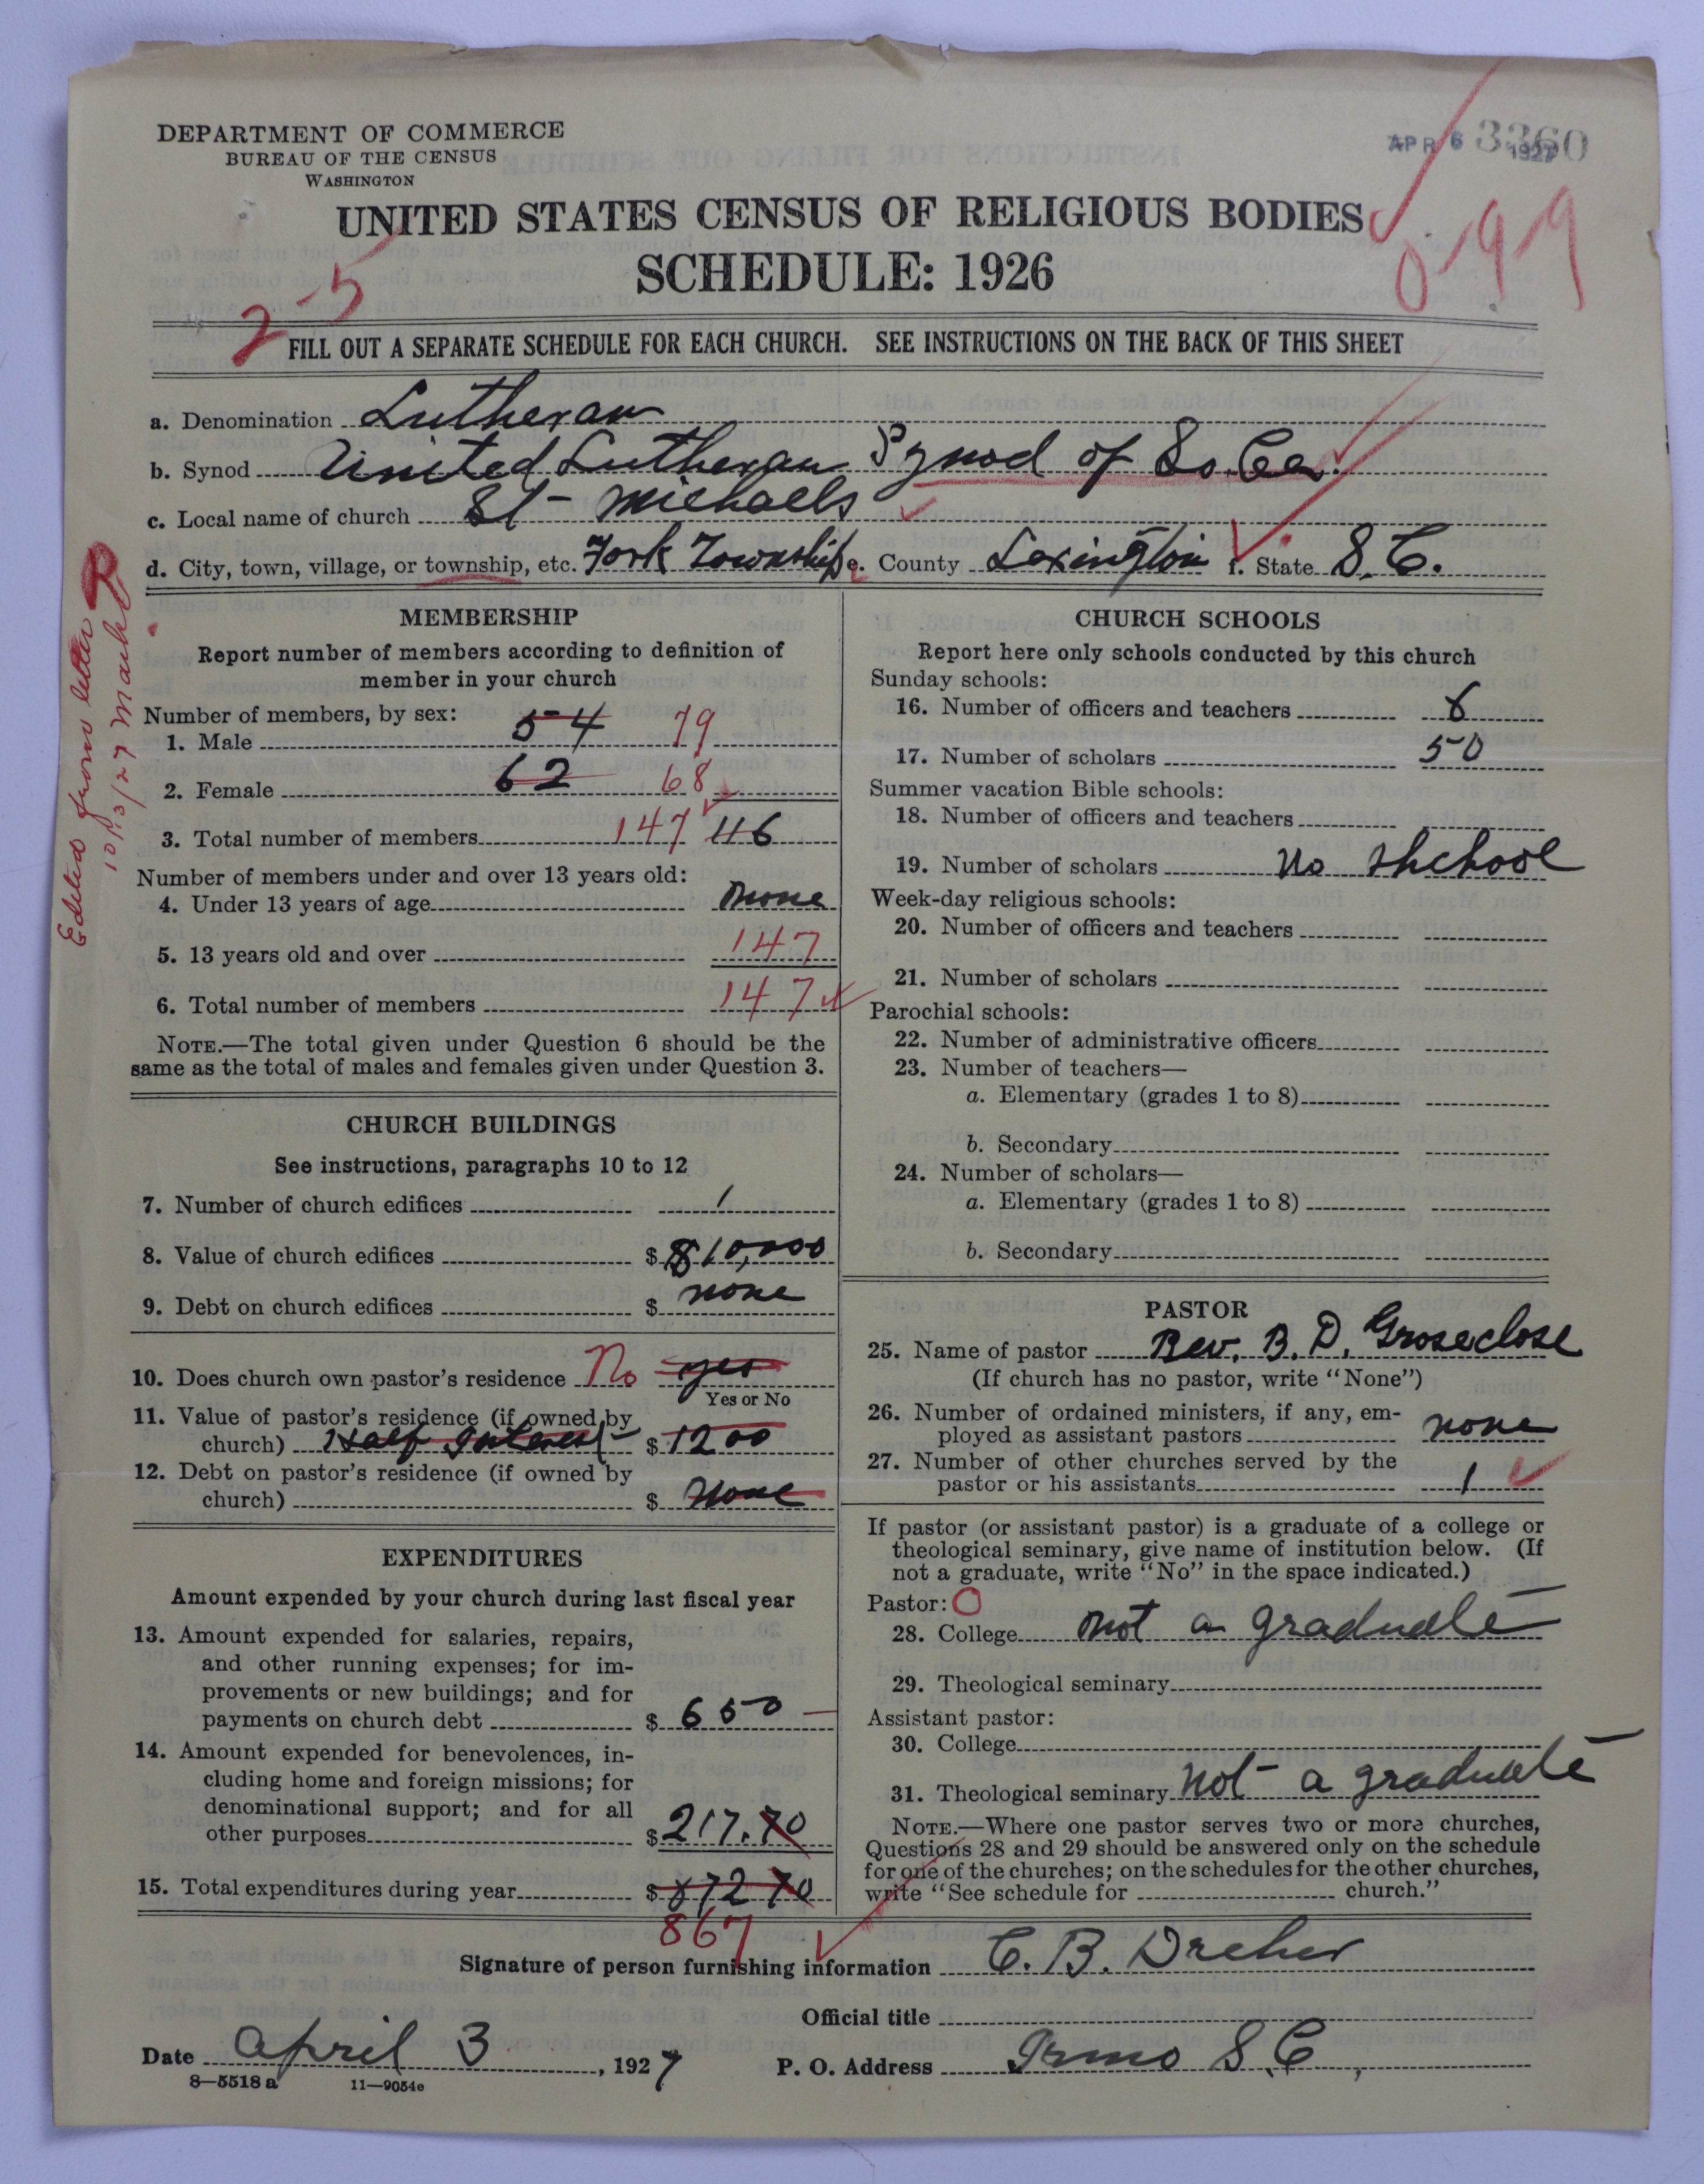 DEPARTMENT OF COMMERCE
BUREAU OF THE CENSUS
WASHINGTON
APR 6 1927
3360
UNITED STATES CENSUS OF RELIGIOUS BODIES
0-99
SCHEDULE: 1926
2-5
FILL OUT A SEPARATE SCHEDULE FOR EACH CHURCH. SEE INSTRUCTIONS ON THE BACK OF THIS SHEET
a. Denomination Lutheran
b. Synod United Lutheran Synod of So. Ca.
c. Local name of church St- Michaels
d. City, town, village, or township, etc. Fork Township e. County Lexington f. State S. C.
Edited from letter
10/13/27
MEMBERSHIP
Report number of members according to definition of
member in your church
Number of members, by sex:
1. Male 54 79
2. Female 62 68
3. Total number of members 147 116
Number of members under and over 13 years old:
4. Under 13 years of age none
5. 13 years old and over 147
6. Total number of members 147
NOTE.—The total given under Question 6 should be the
same as the total of males and females given under Question 3.
CHURCH BUILDINGS
See instructions, paragraphs 10 to 12
7. Number of church edifices 1
8. Value of church edifices $ 10,000
9. Debt on church edifices $ none
10. Does church own pastor's residence No yes
Yes or No
11. Value of pastor's residence (if owned by
church) Half Interest $ 1200
12. Debt on pastor's residence (if owned by
church) $ None
EXPENDITURES
Amount expended by your church during last fiscal year
13. Amount expended for salaries, repairs,
and other running expenses; for im-
provements or new buildings; and for
payments on church debt $ 650
14. Amount expended for benevolences, in-
cluding home and foreign missions; for
denominational support; and for all
other purposes $ 217.70
15. Total expenditures during year $ 872 70
867
CHURCH SCHOOLS
Report here only schools conducted by this church
Sunday schools:
16. Number of officers and teachers 6
17. Number of scholars 50
Summer vacation Bible schools:
18. Number of officers and teachers
19. Number of scholars No shchool
Week-day religious schools:
20. Number of officers and teachers
21. Number of scholars
Parochial schools:
22. Number of administrative officers
23. Number of teachers—
a. Elementary (grades 1 to 8)
b. Secondary
24. Number of scholars—
a. Elementary (grades 1 to 8)
b. Secondary
PASTOR
25. Name of pastor Rev. B. D. Groseclose
(If church has no pastor, write "None")
26. Number of ordained ministers, if any, em-
ployed as assistant pastors none
27. Number of other churches served by the
pastor or his assistants 1
If pastor (or assistant pastor) is a graduate of a college or
theological seminary, give name of institution below. (If
not a graduate, write "No" in the space indicated.)
Pastor:
28. College not a graduate
29. Theological seminary
Assistant pastor:
30. College
31. Theological seminary Not a graduate
NOTE.—Where one pastor serves two or more churches,
Questions 28 and 29 should be answered only on the schedule
for one of the churches; on the schedules for the other churches,
write "See schedule for church."
Signature of person furnishing information C. B. Dreher
Official title
Date April 3, 1927 P. O. Address Irmo S. C,
8—5518 a 11—9054c